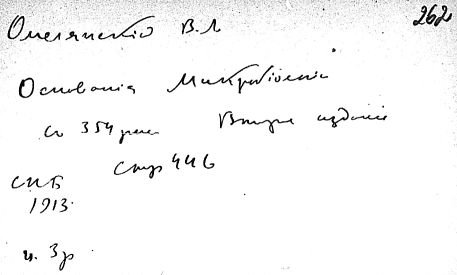 262
Омелянскiй В.Л
Основанiя Микробiологiи
съ 354 рис Второе изданiе
Стр 446
СПБ
1913.
ц. 3р